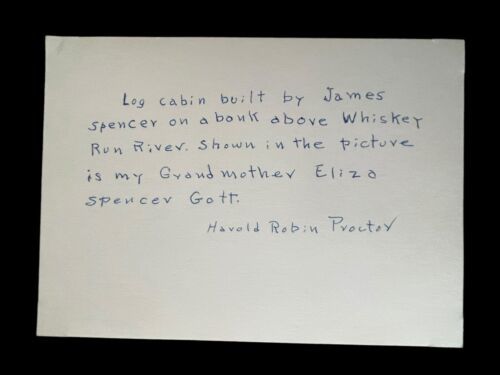 Log cabin built by James
spencer on a bank above Whiskey
Run River. Shown in the picture
is my Grandmother Eliza
Spencer Gott.
Harold Robin Proctor